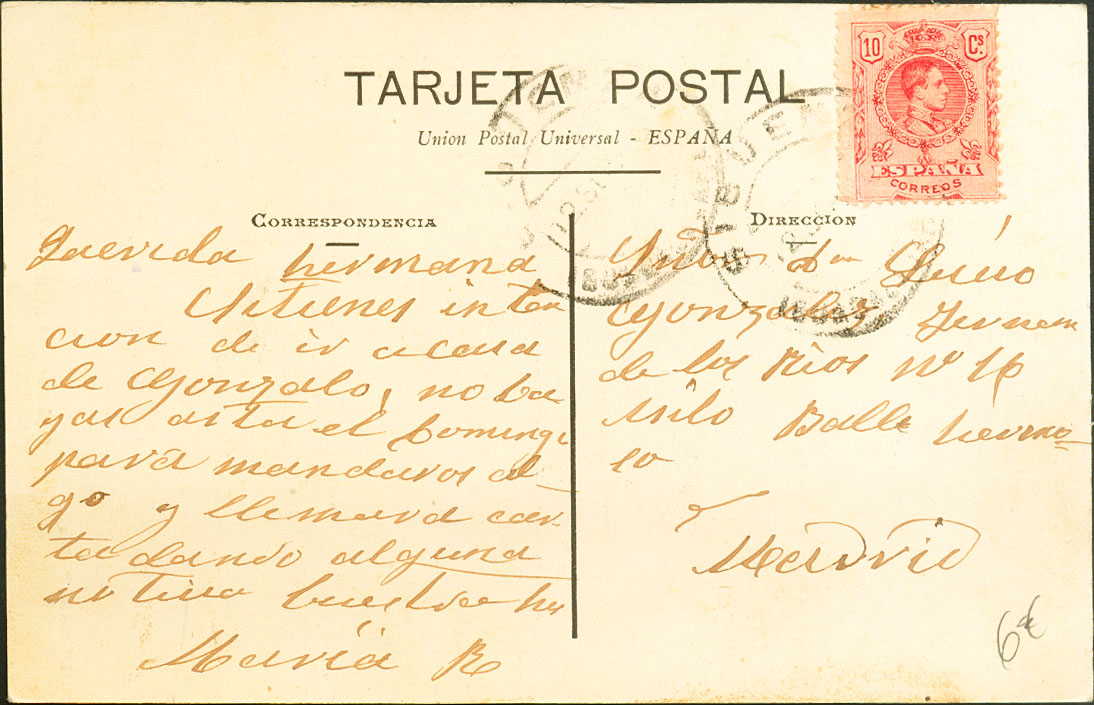 TARJETA POSTAL
Union Postal Universal - ESPAÑA
10 Cs.
ESPAÑA
CORREOS
CORRESPONDENCIA
Querida hermana
si tienes inten
cion de ir a casa
de Gonzalo, no ba
yas asta el Domingo
para mandaros al-
go y llebara car-
ta dando alguna
noticia buestra her
Maria R
DIRECCION
Lucio
Gonzalez Fernan
de los Rios nº 16
Balle hermo-
so
Madrid
6